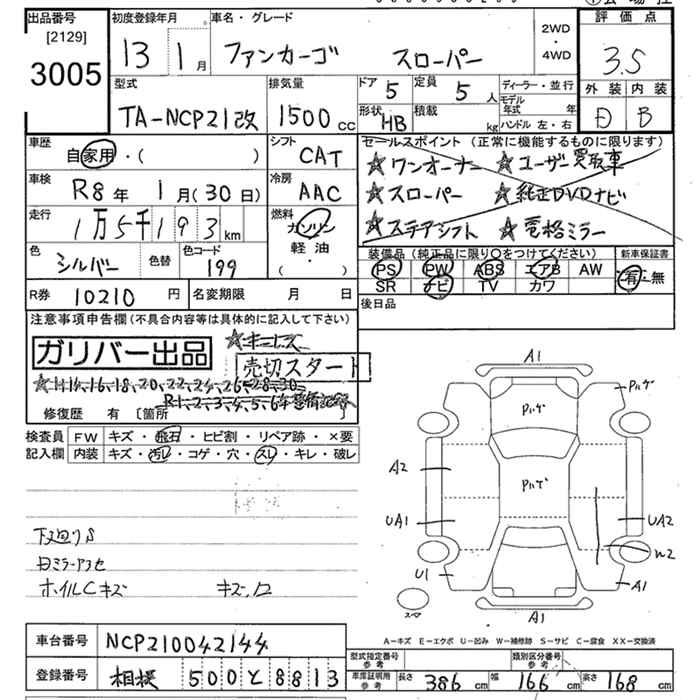 出品番号
[2129]
3005
初度登録年月
13 1月
車名・グレード
ファンカーゴ スローパー
2WD
・
4WD
評価点
3.5
外装 内装
D B
型式
TA-NCP21改
排気量
1500 CC
ドア 5
定員 5 人
形状 HB
積載 kg
ディーラー・並行
モデル年式 年
ハンドル 左・右
車歴
自家用・( )
シフト
CAT
車検
R8年 1月(30日)
冷房
AAC
走行
1万5千193km
燃料
ガソリン
軽油
( ・ )
色
シルバー
色替
色コード
199
R券 10210円
名変期限 月 日
セールスポイント(正常に機能するものに限ります)
★ワンオーナー ★ユーザー買取車
★スローパー ★純正DVDナビ
★ステアシフト ★電格ミラー
装備品(純正品に限り○をつけてください)
新車保証書
PS PW ABS エアB AW
SR ナビ TV カワ
有・無
後日品
注意事項申告欄(不具合内容等は具体的に記入して下さい)
ガリバー出品
★キーレス
売切スタート
★H14,16,18,20,22,24,26,28,30
R1,2,3,4,5,6年整備記録
修復歴 有 〔箇所 〕
検査員記入欄
FW キズ・飛石・ヒビ割・リペア跡・×要
内装 キズ・汚レ・コゲ・穴・スレ・キレ・破レ
下廻りS
ホイルCキズ キズ,凹
A1
A2
UA1
U1
A1
UA2
W2
A1
A-キズ E-エクボ U-凹み W-補修跡 S-サビ C-腐食 XX-交換済
車台番号 NCP210042144
登録番号 相模 500と8813
型式指定番号 参考
類別区分番号 参考
車庫証明用 参考
長さ 386 cm 幅 166 cm 高さ 168 cm